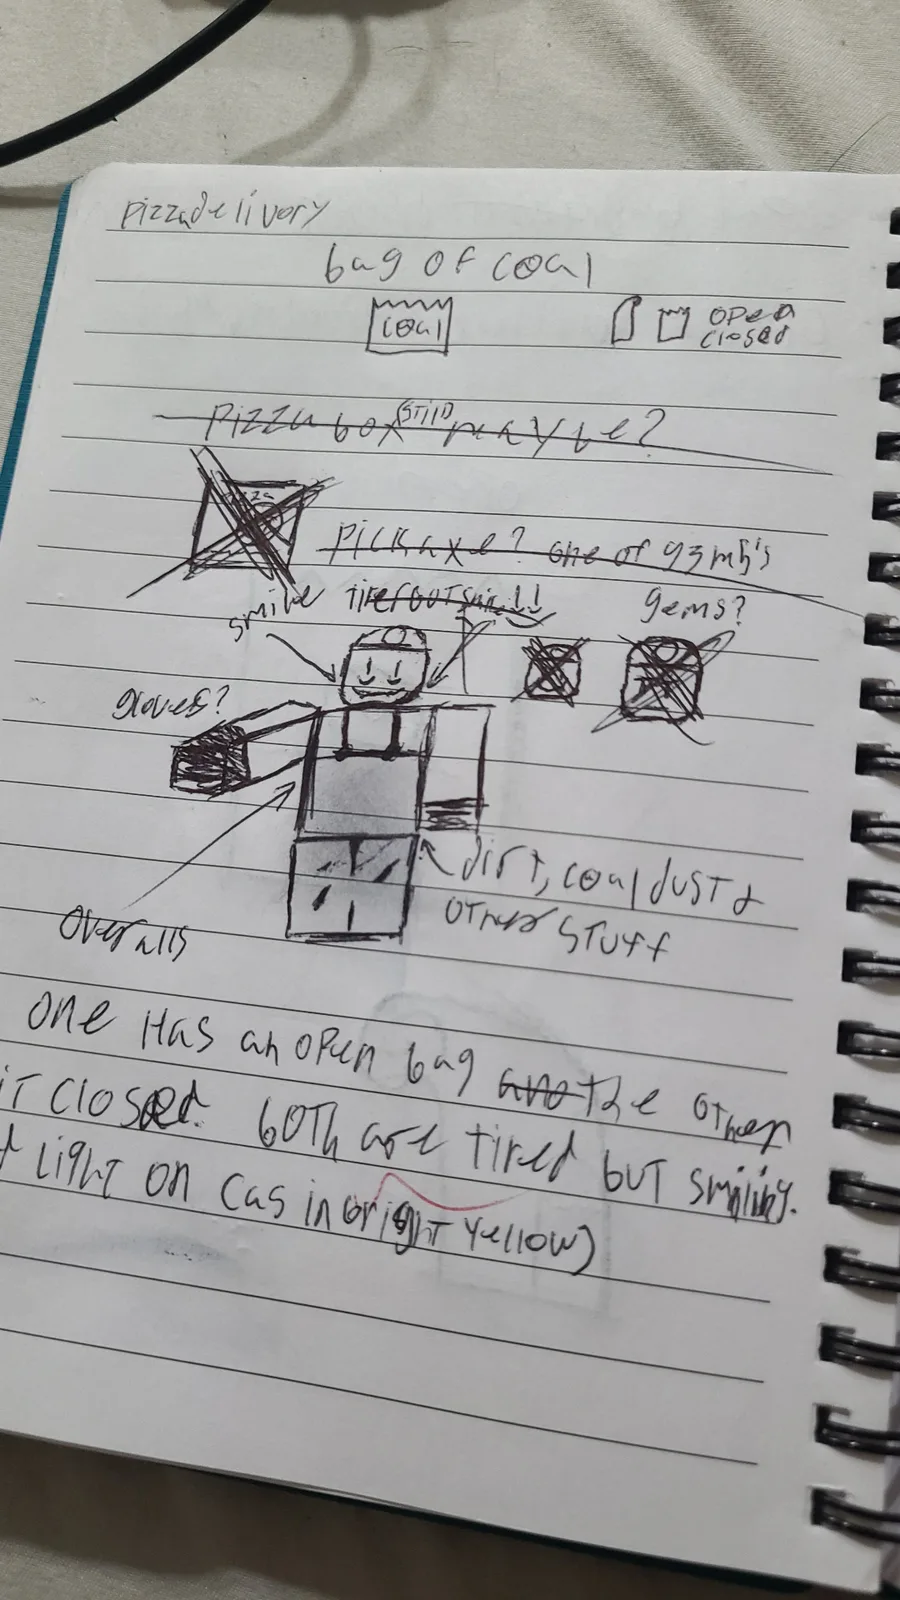 pizzadelivory
bag of coal
coal
open
closed
pizza box still maybe?
pickaxe? one of
smile
tired but
gems?
gloves?
dirt, coal dust &
other stuff
overalls
one has an open bag and the other
it closed. both are tired but smiling.
light on cas in bright yellow)